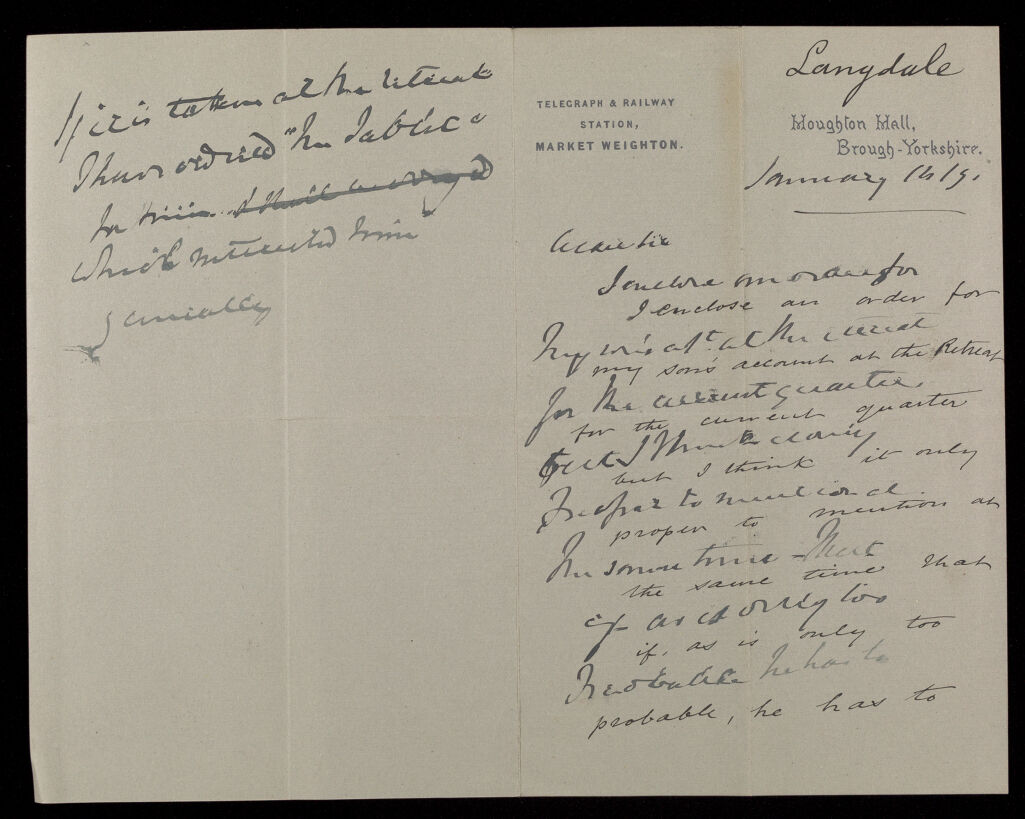 Langdale
TELEGRAPH & RAILWAY
STATION,
MARKET WEIGHTON.
Houghton Hall,
Brough-Yorkshire.
January
Dear Sir
I enclose an order for
I enclose an order for
my son's act. at the retreat
my son's account at the Retreat
for the current quarter.
for the current quarter
but I think it only
but I think it only
proper to mention at
proper to mention at
the same time - that
the same time that
if as is only too
if, as is only too
probable he has to
probable, he has to
If it is taken at the retreat
I have ordered "the
for him
which interested him